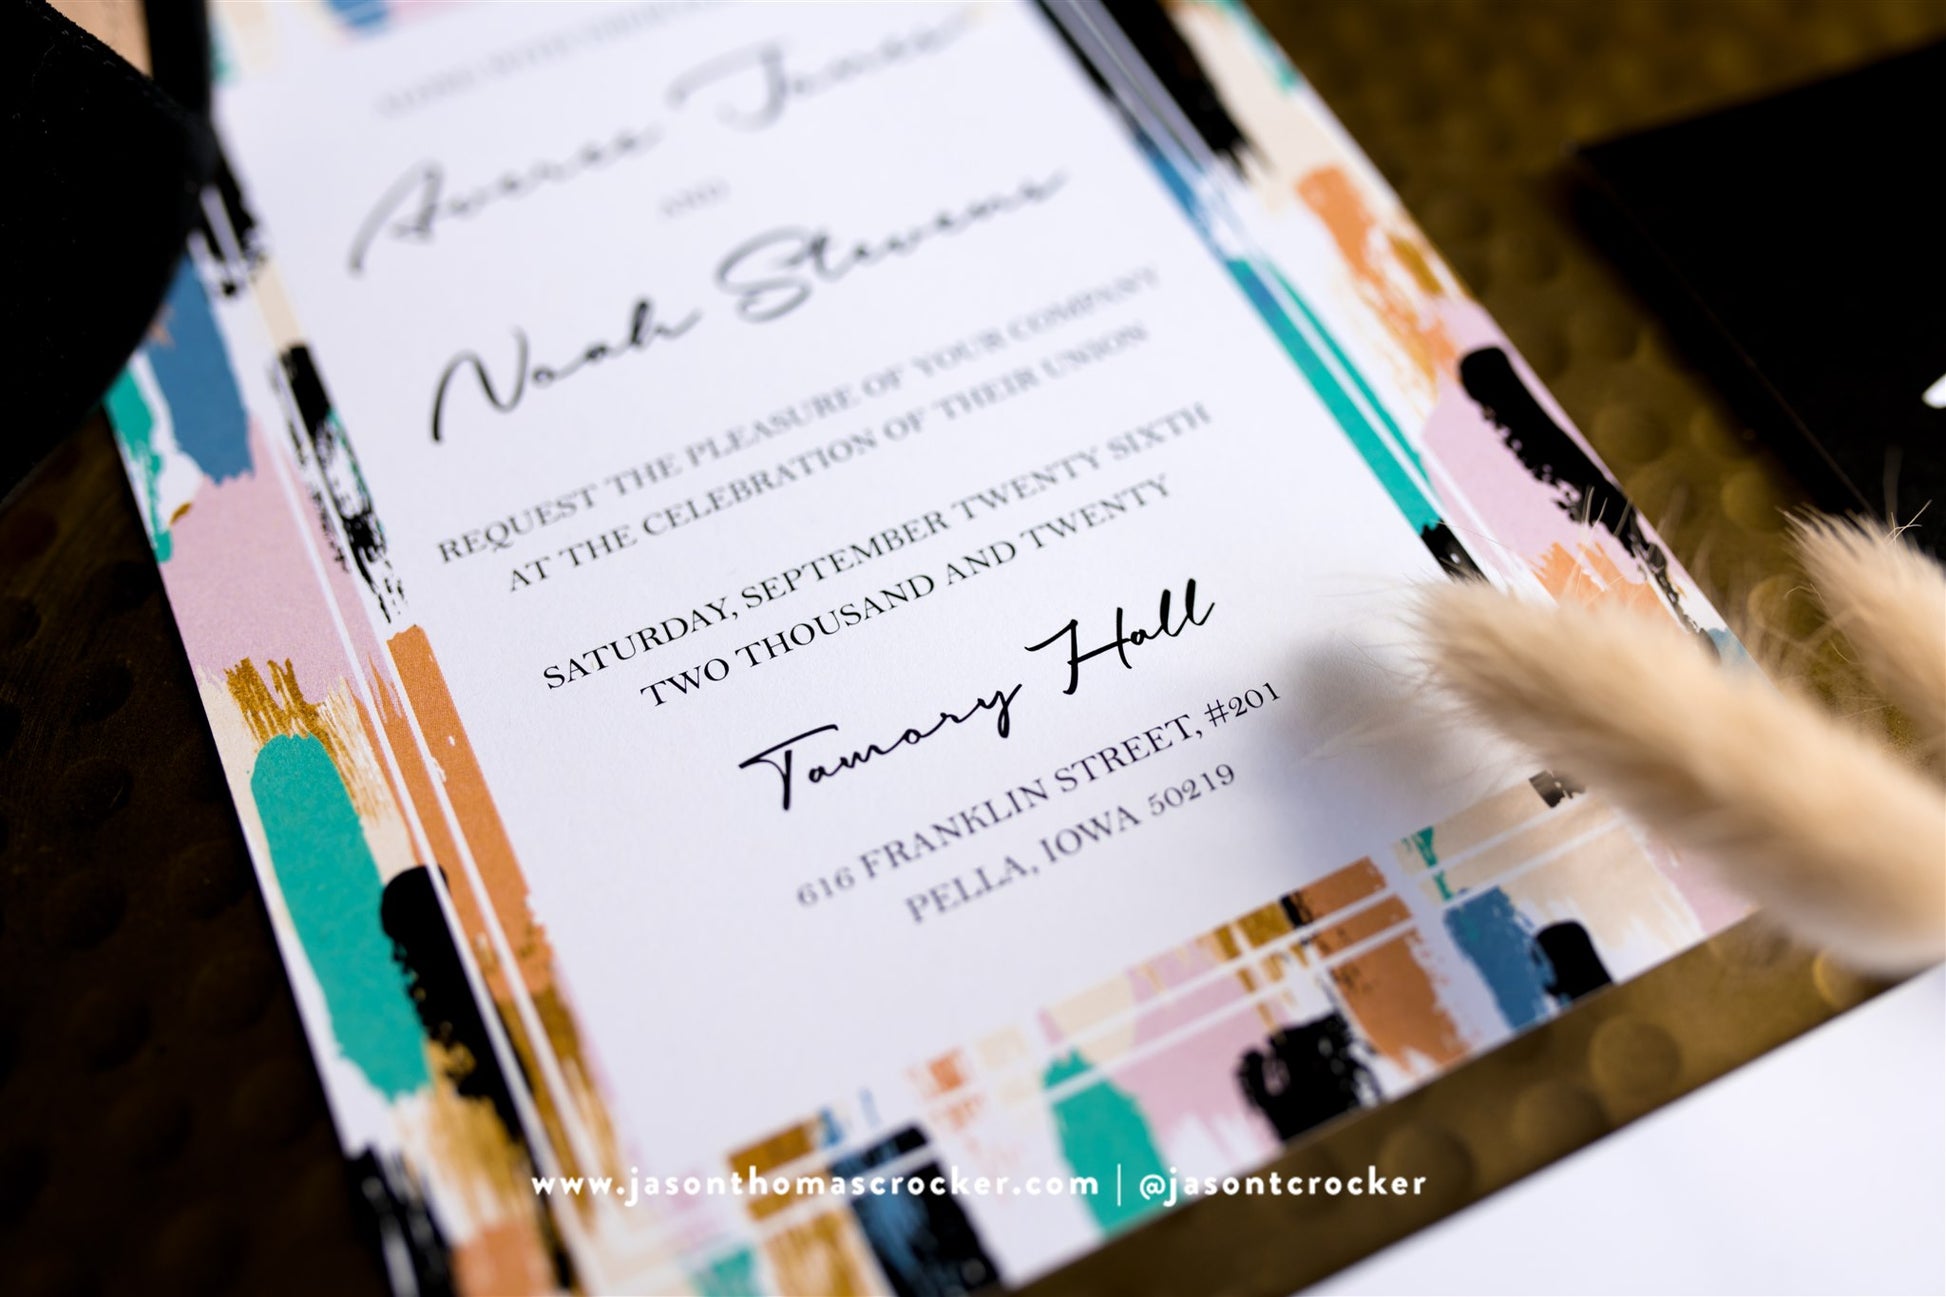 Averee Jones
AND
Noah Stevens
REQUEST THE PLEASURE OF YOUR COMPANY
AT THE CELEBRATION OF THEIR UNION
SATURDAY, SEPTEMBER TWENTY SIXTH
TWO THOUSAND AND TWENTY
Tamory Hall
616 FRANKLIN STREET, #201
PELLA, IOWA 50219
www.jasonthomascrocker.com | @jasontcrocker